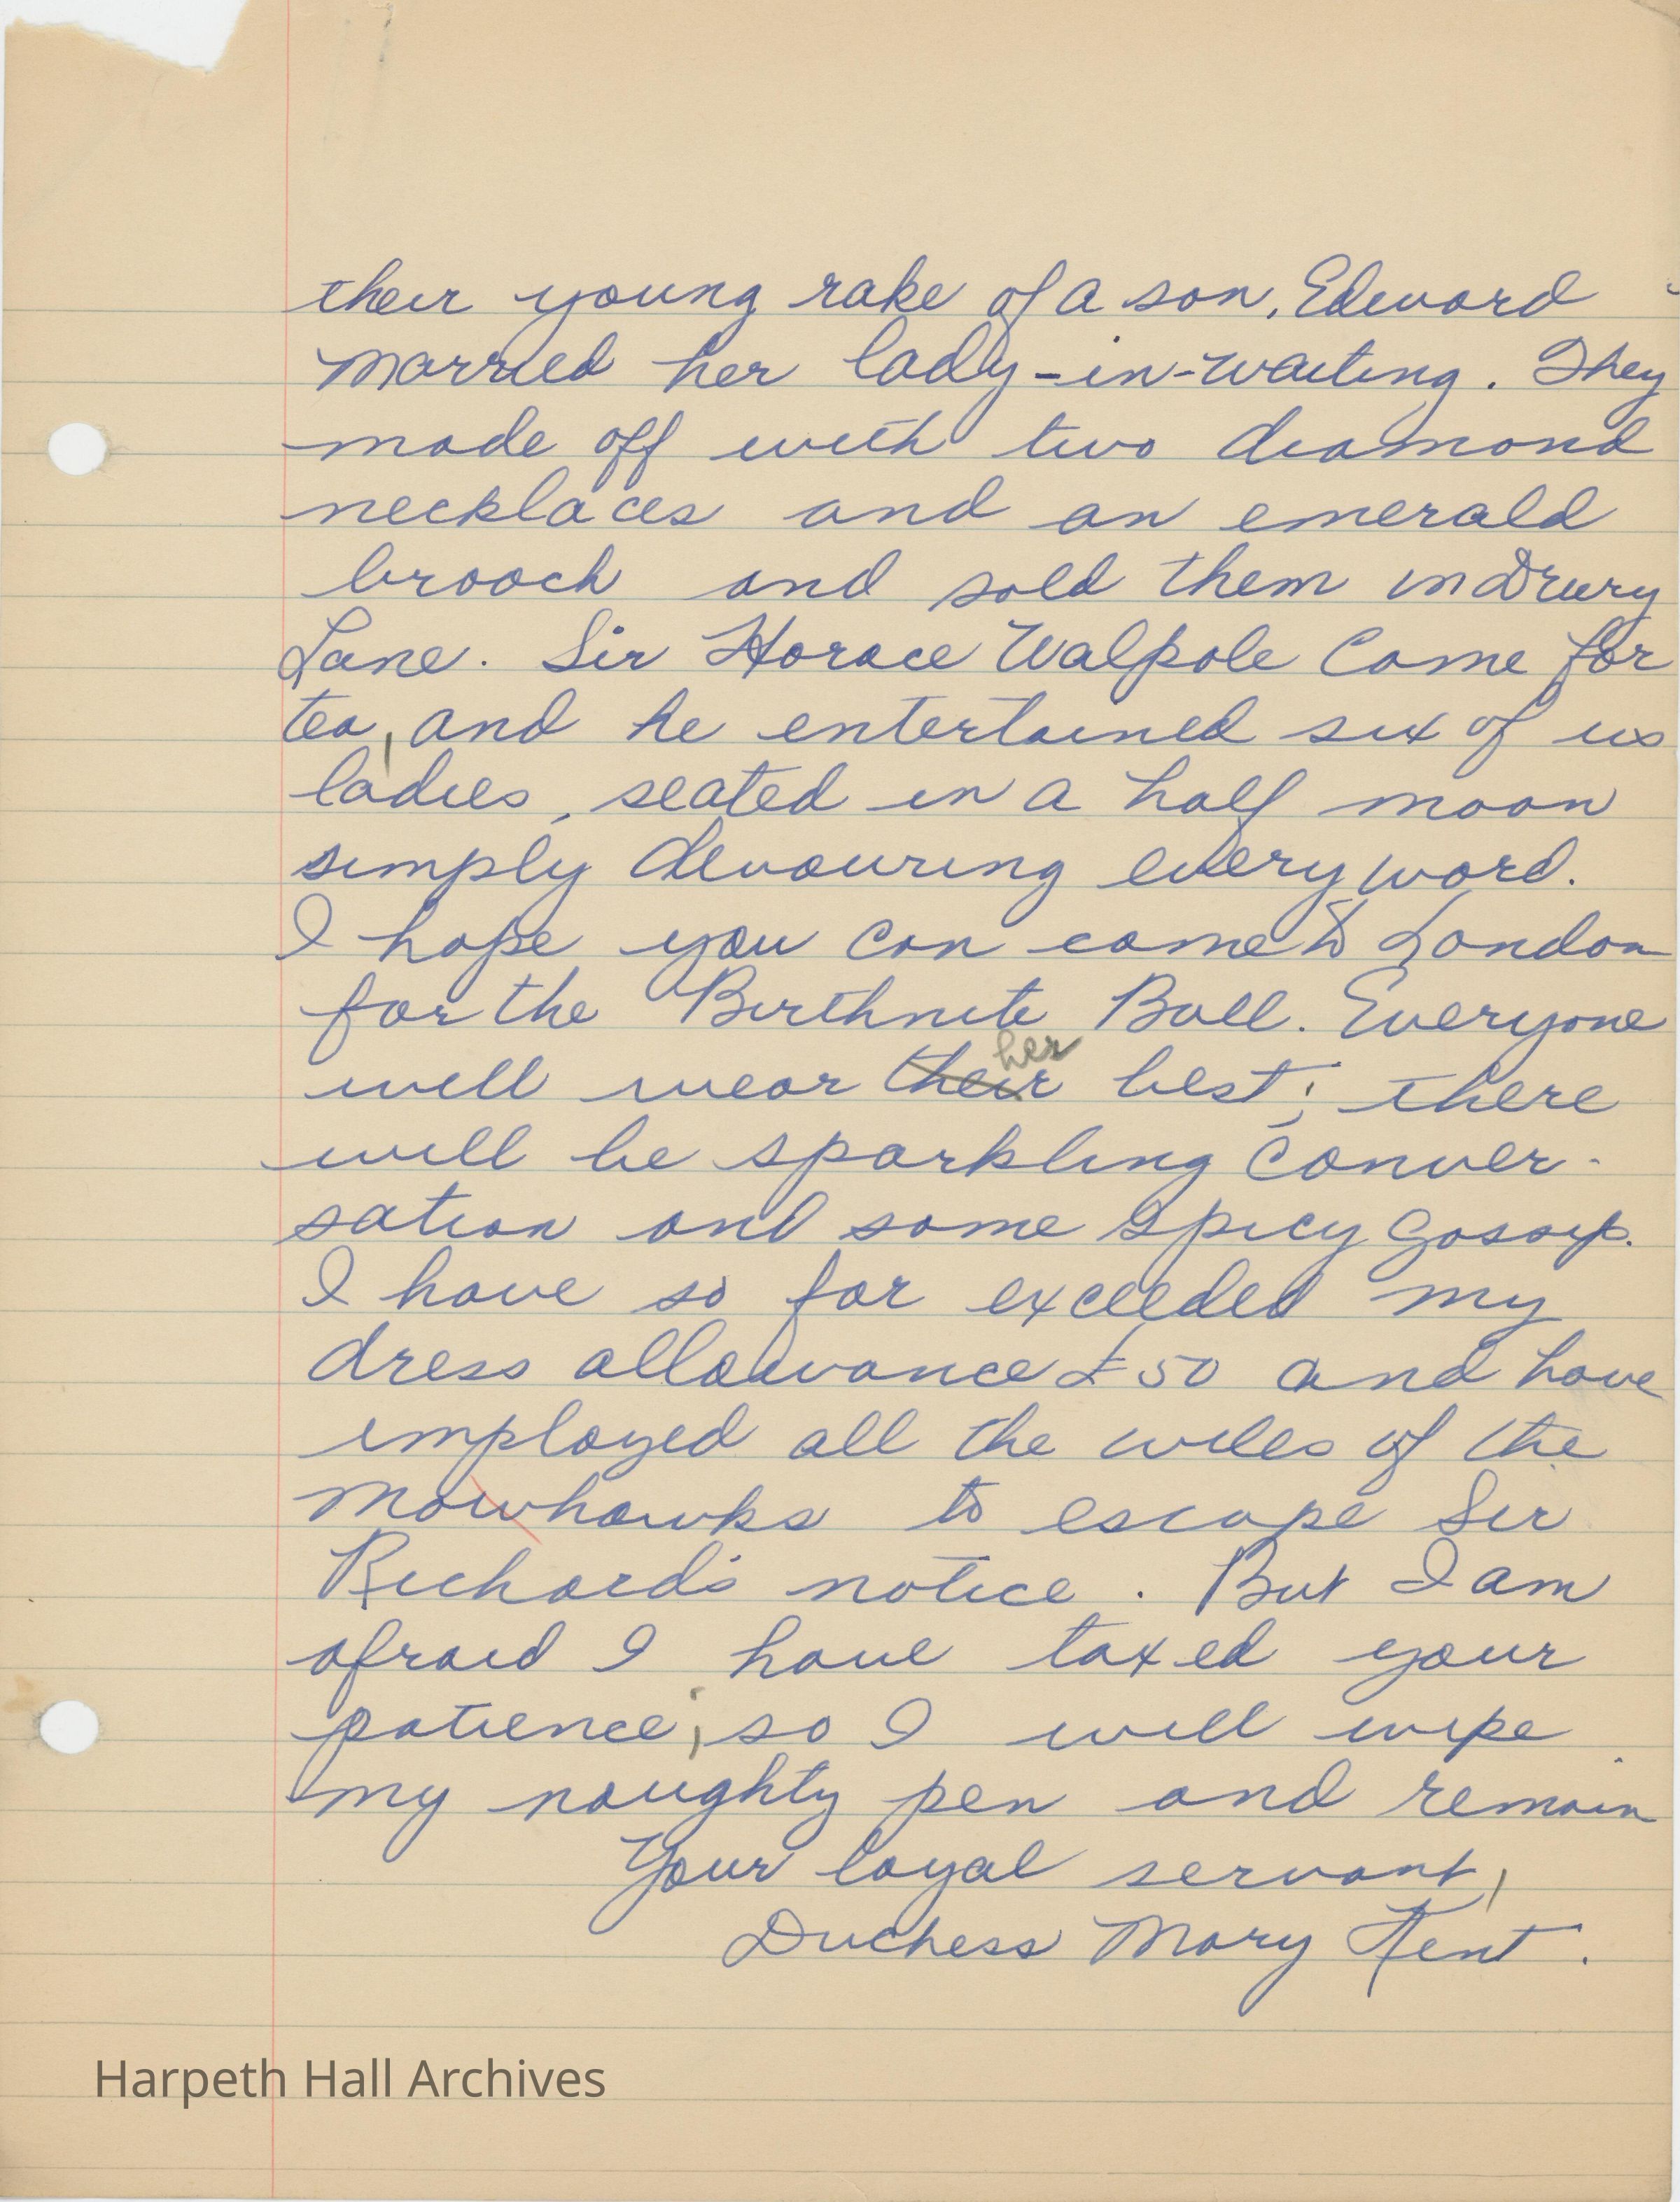 their young rake of a son, Edward
married her lady-in-waiting. They
made off with two diamond
necklaces and an emerald
brooch and sold them in Drury
Lane. Sir Horace Walpole came for
tea, and he entertained six of us
ladies, seated in a half moon
simply devouring every word.
I hope you can come to London
for the Birthnite Ball. Everyone
her
will wear their best; there
will be sparkling conver-
sation and some spicy gossip.
I have so far exceeded my
dress allowance £50 and have
employed all the wiles of the
Mowhawks to escape Sir
Richard's notice. But I am
afraid I have taxed your
patience; so I will wipe
my naughty pen and remain
Your loyal servant,
Duchess Mary Kent.
Harpeth Hall Archives